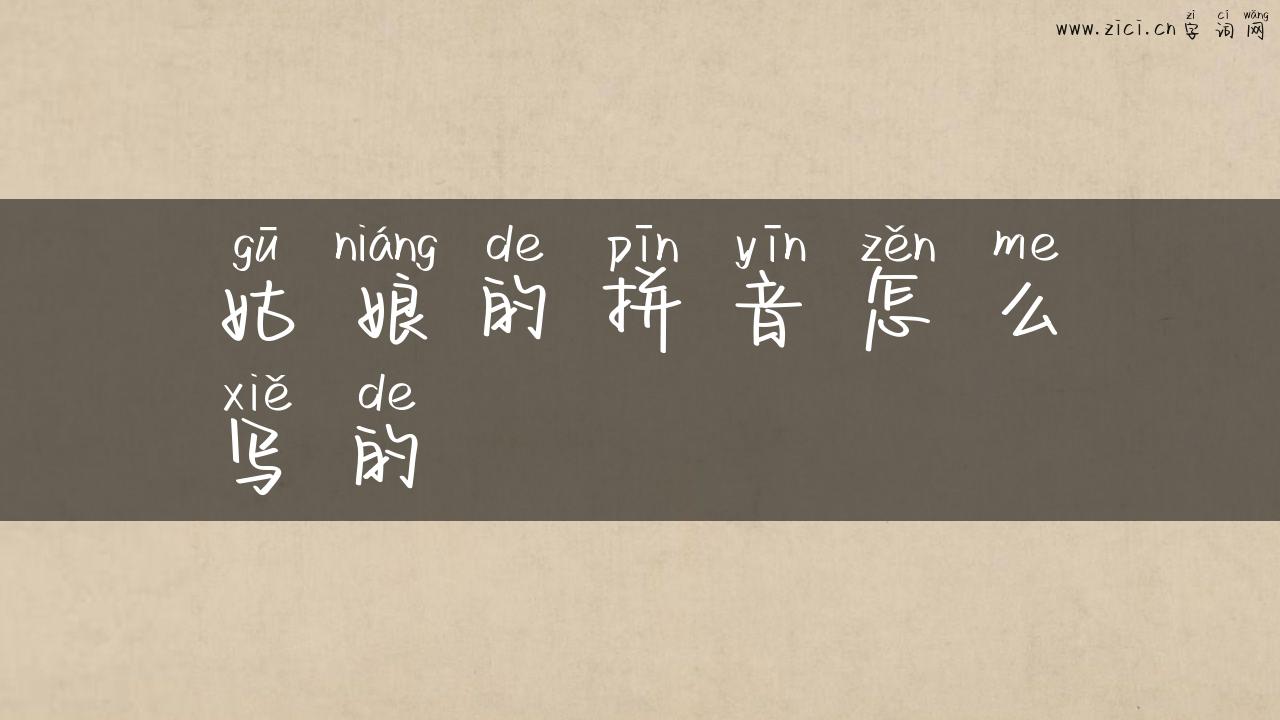 zì cí wǎng
www.zici.cn 字词网
gū niáng de pīn yīn zěn me
姑娘的拼音怎么
xiě de
写的